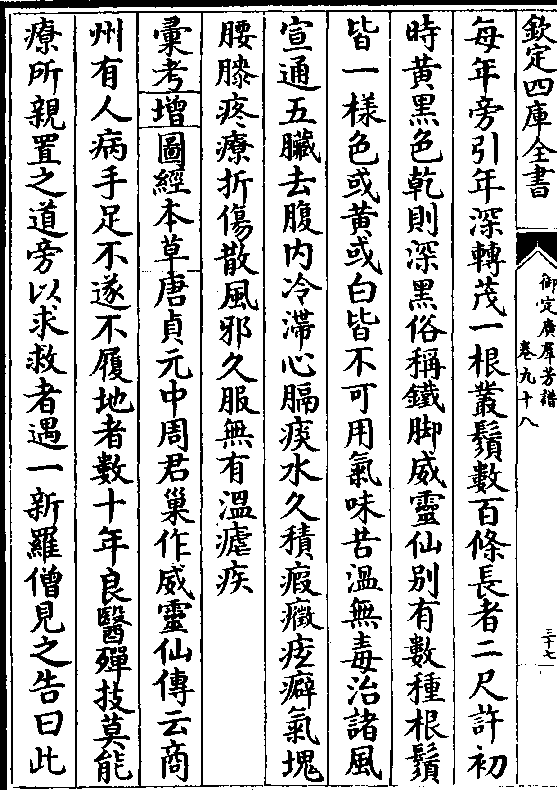 欽定四庫全書
御定廣羣芳譜
卷九十八
三十七
每年旁引年深轉茂一根叢鬚數百條長者二尺許初
時黃黑色乾則深黑俗稱鐵脚威靈仙別有數種根鬚
皆一樣色或黃或白皆不可用氣味苦溫無毒治諸風
宣通五臟去腹内冷滯心膈痰水久積瘕癥痃癖氣塊
腰膝疼療折傷散風邪久服無有溫瘧疾
彙考增圖經本草唐貞元中周君巢作威靈仙傳云商
州有人病手足不遂不履地者數十年良醫殫技莫能
療所親置之道旁以求救者遇一新羅僧見之告曰此